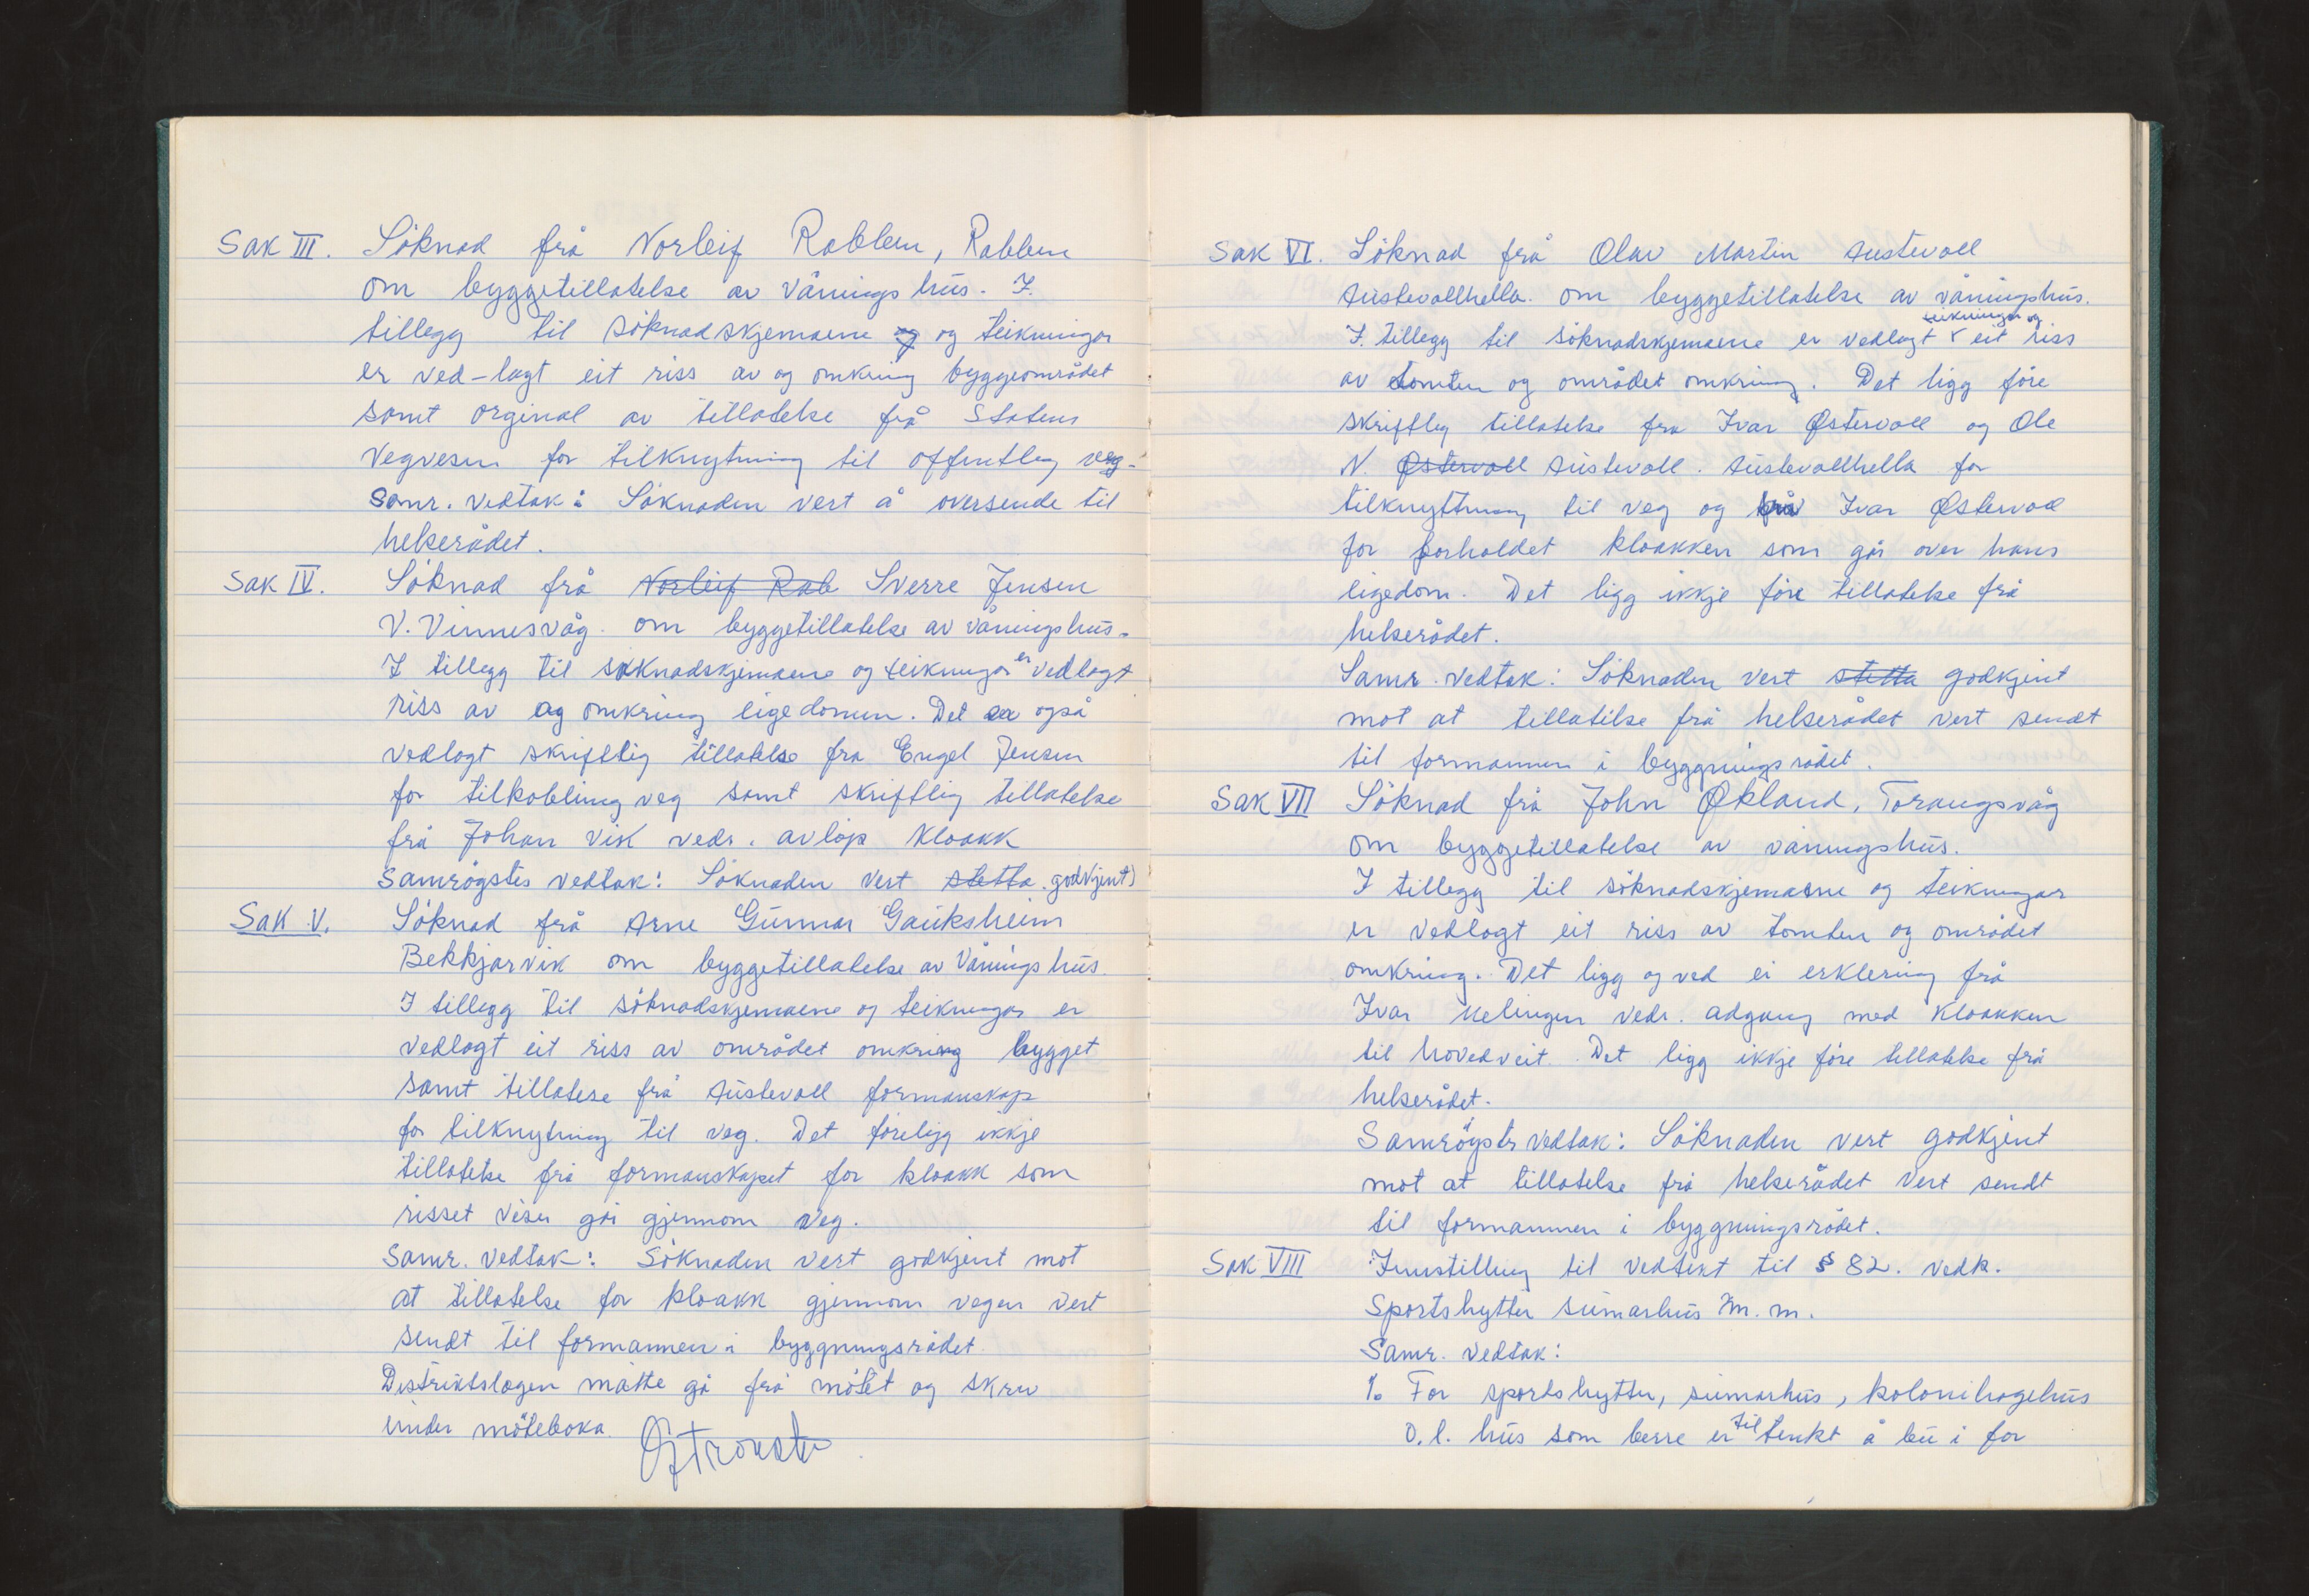 Sak III. Söknad frå Norleif Rabben, Rabben
om byggetillatelse av våningshus. I.
tillegg til söknadskjemaene og og teikningar
er ved-lagt eit riss av og omkring byggeområdet
samt orginal av tillatelse frå Statens
Vegvesen for tilknytning til offentleg veg.
Samr. vedtak: Söknaden vert å oversende til
helserådet.
Sak IV. Söknad frå Norleif Rab Sverre Jensen
V. Vinnesvåg. om byggetillatelse av våningshus.
I tillegg til söknadskjemaene og teikningar er vedlagt
riss av og omkring eigedomen. Det er også
vedlagt skriftlig tillatelse fra Engel Jensen
for tilkobling veg samt skriftlig tillatelse
frå Johan Vik vedr. avlöp kloakk
Samrøystes vedtak: Söknaden vert stetta. godkjent
Sak V. Söknad frå Arne Gunnar Gauksheim
Bekkjarvik om byggetillatelse av Våningshus.
I tillegg til söknadskjemaene og teikningar er
vedlagt eit riss av området omkring bygget
samt tillatese frå Austevoll formanskap
for tilknytning til veg. Det föreligg ikkje
tillatelse frå formanskapet for kloakk som
risset viser går gjennom veg.
Samr. vedtak: Söknaden vert godkjent mot
at tillatelse for kloakk gjennom vegen vert
sendt til formannen i byggningsrådet.
Distriktslegen måtte gå frå mötet og skriv
under möteboka.
Sak VI. Söknad frå Olav Martin Austevoll
Austevollhella. om byggetillatelse av våningshus.
I. tillegg til söknadskjemaene er vedlagt teikningar og eit riss
av tomten og området omkring. Det ligg före
skriftleg tillatelse fra Ivar Østervoll og Ole
N. Østervoll Austevoll. Austevollhella for
tilknyttning til veg og frå Ivar Østervoll
for forholdet kloakken som går over hans
eigedom. Det ligg ikkje före tillatelse frå
helserådet.
Samr. vedtak: Söknaden vert stetta godkjent
mot at tillatelse frå helserådet vert sendt
til formannen i byggningsrådet.
Sak VII Söknad frå John Økland, Torangsvåg
om byggetillatelse av våningshus.
I tillegg til söknadskjemaene og teikningar
er vedlagt eit riss av tomten og området
omkring. Det ligg og ved ei erklering frå
Ivar Melingen vedr. adgang med kloakken
til hovedveit. Det ligg ikkje före tillatelse frå
helserådet.
Samröystes vedtak: Söknaden vert godkjent
mot at tillatelse frå helserådet vert sendt
til formannen i byggningsrådet.
Sak VIII Innstilling til vedtekt til § 82. vedk.
Sportshytter sumarhus m.m.
Samr. vedtak:
1. For sportshytter, sumarhus, kolonihagehus
o.l. hus som berre er tiltenkt å bu i for